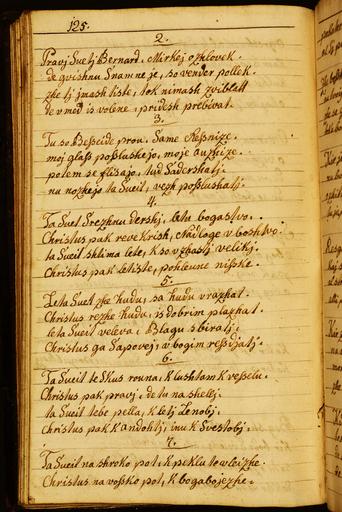 125.
2.
Pravj Suetj Bernard, Mirkej ozhlovek.
de gvishnu Snam ne je, so vender pollek.
zhe tj jmash liste, tok nimash zviblatt
te v med is volene, pridesh prebivat.
3.
Tu so Besseide prou, Same Ressnize.
moj glass posslushejo, moje auzhize.
potem se flissajo, tud Sadershatj.
nu nozhejo ta Sueit, vezh posslushatj.
4.
Ta Suet Srezhnu dershj, leta bogastvo.
Christus pak reve Krish, Nadloge v boshtvo.
ta Sueit shtima lete, K so vzhastj velikj.
Christus pak letiste, pohleune nisske.
5.
Leta Suet zhe hudu, sa hudu vrazhat.
Christus rezhe hudu, is dobrim plazhat.
leta Sueit veleva, Blagu sbiratj.
Christus ga Sapovej, v bogim resdjatj.
6.
Ta Sueit te Skus rouna, K lushtam K vesselu.
Christus pak pravj, de tu na shellj.
ta Sueit tebe pella, K letj Lenobj.
christus pak K andohtj, inu K Svestobj.
7.
Ta Sueit na shroko pot, K peklu to vleizhe.
Christus na vossko pot, K bogabojezhe.